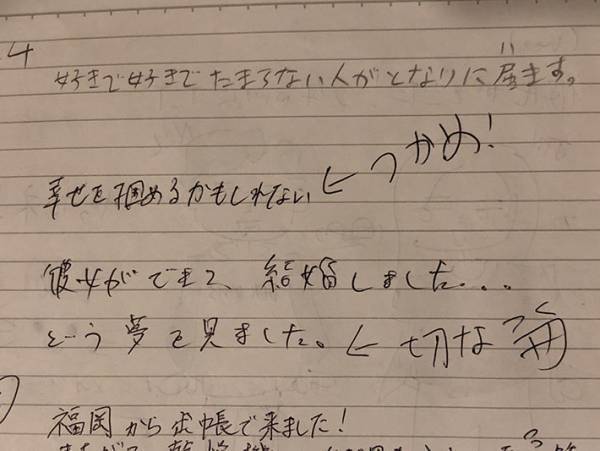 4
好きで好きでたまらない人がとなりに居ます。
幸せを掴めるかもしれない ← つかめ!
彼女ができて、結婚しました...
という夢を見ました。 ← 切な
福岡から出張で来ました!